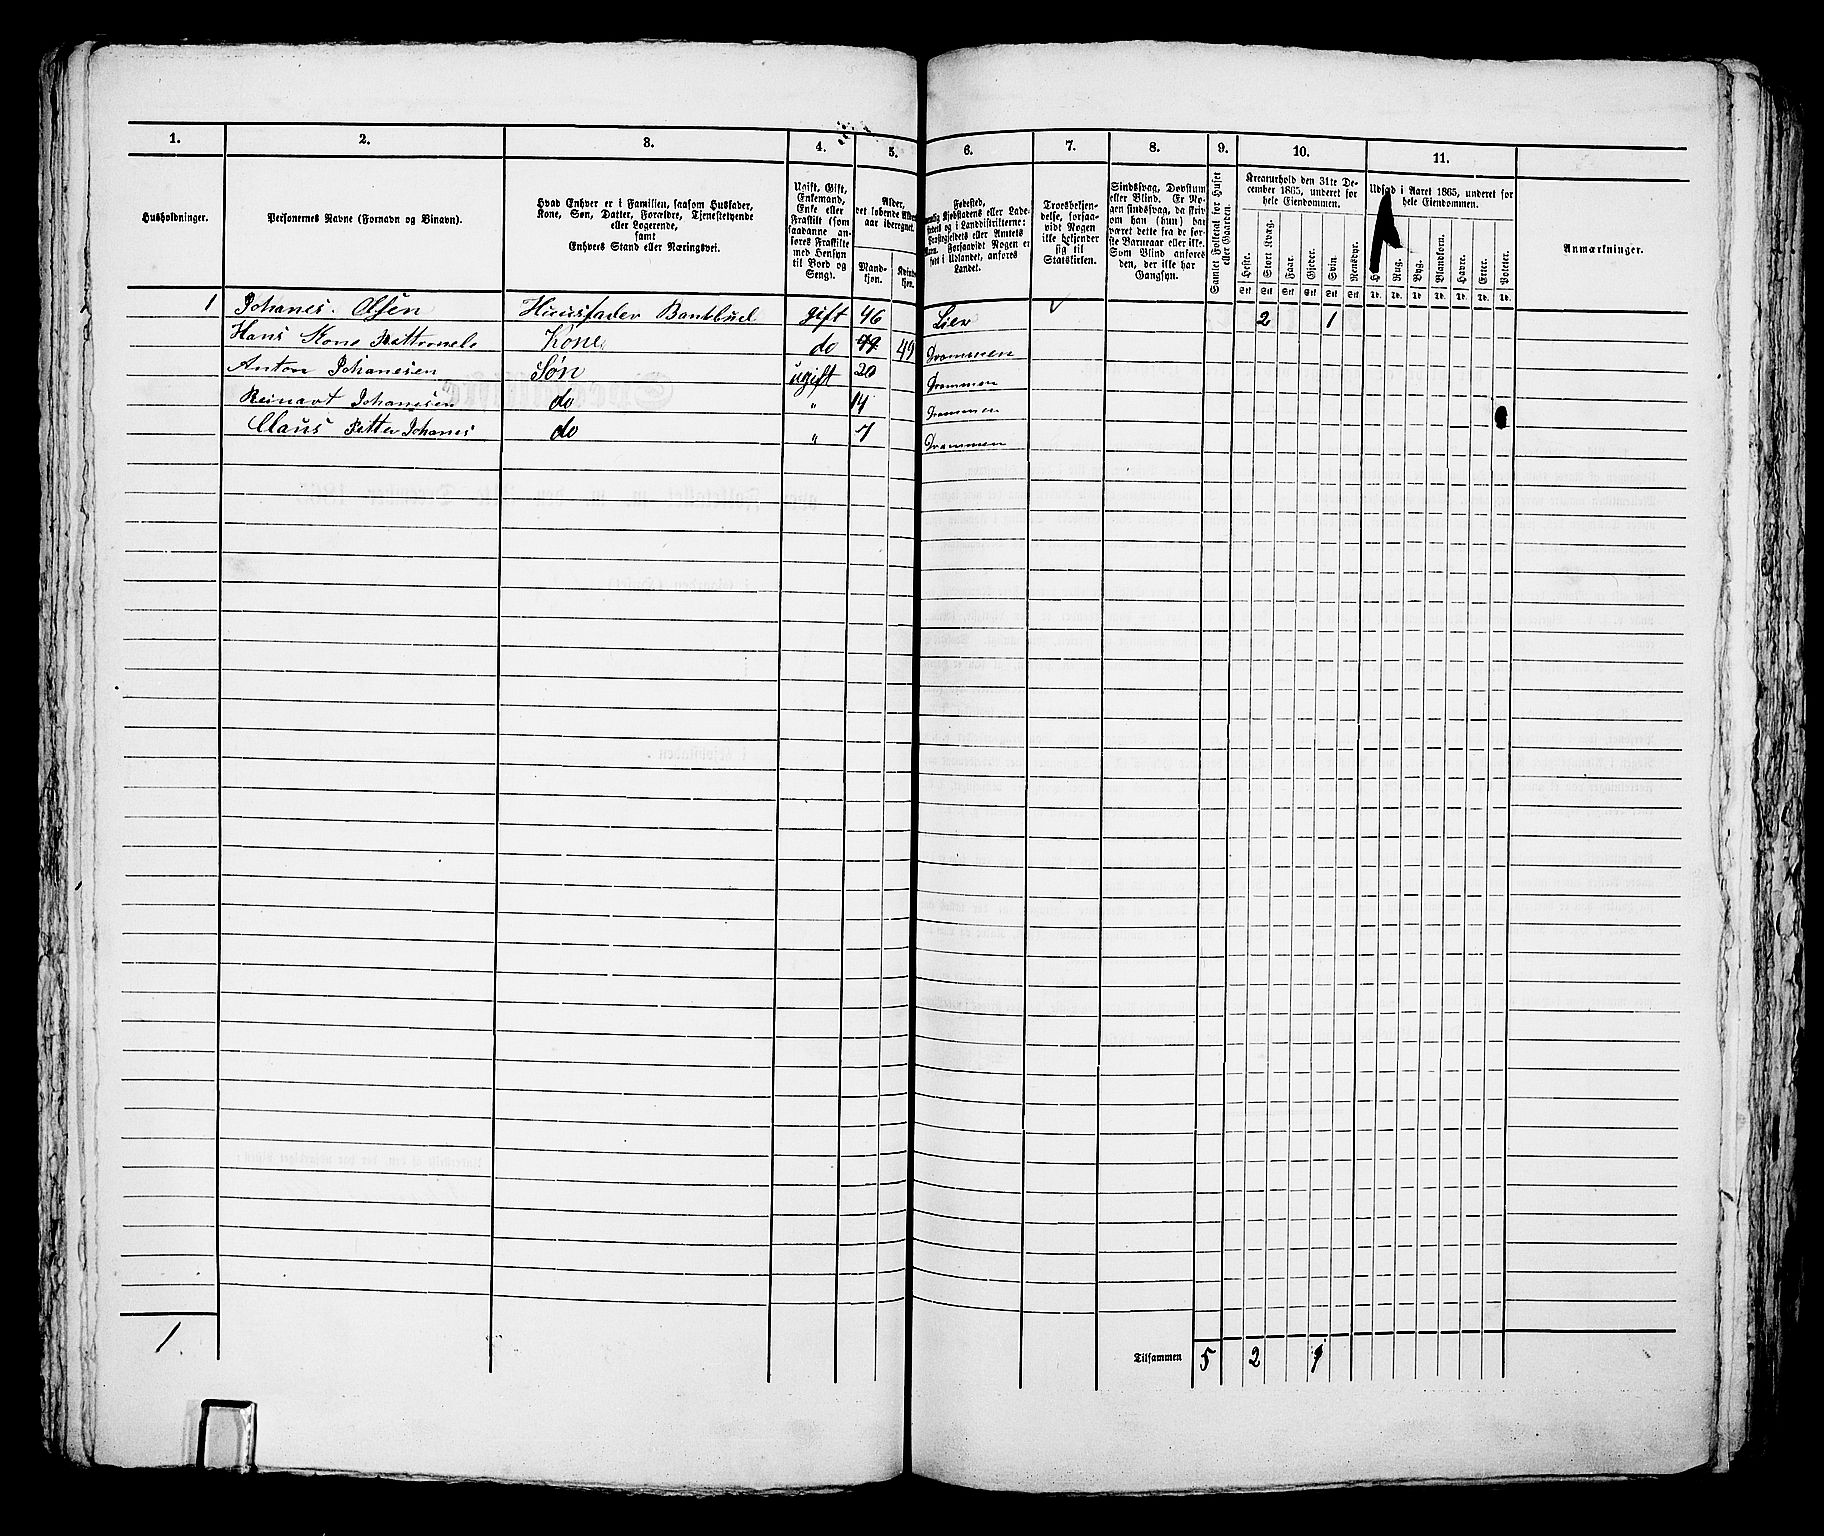 1. 2. 3. 4. 5. 6. 7. 8. 9. 10. 11.
Husholdninger.
Personernes Navne (Fornavn og Binavn).
Hvad Enhver er i Familien, saasom Husfader,
Kone, Søn, Datter, Forældre, Tjenestetyende
eller Logerende,
samt
Enhvers Stand eller Næringsvei.
Ugift, Gift,
Enkemand,
Enke eller
Fraskilt (som
saadanne an-
føres Fraskilte
med Hensyn
til Bord og
Seng).
Alder,
det løbende Alders-
aar iberegnet.
Mand-
kjøn.
Kvinde-
kjøn.
Fødested,
nemlig Kjøbstadens eller Lade-
stedets og i Landdistrikterne:
Præstegjeldets eller Amtets
Navn. Forsaavidt Nogen er
født i Udlandet, anføres
Landet.
Troesbekjen-
delse, forsaa-
vidt Nogen
ikke bekjender
sig til
Statskirken.
Sindssvag, Døvstum
eller Blind. Er No-
gen sindssvag, da skriv
om han (hun) har
været dette fra de før-
ste Barneaar eller ikke.
Som Blind anføres
den, der ikke har
Gangsyn.
Samlet Folketal for Huset
eller Gaarden.
Kreaturhold den 31te De-
cember 1865, underet for
hele Eiendommen.
Heste. Stort Kvæg. Faar. Gjeder. Svin. Rensdyr.
Stk Stk Stk Stk Stk Stk
Udsæd i Aaret 1865, underet for
hele Eiendommen.
Rug. Byg. Blandkorn. Havre. Erter. Poteter.
Td. Td. Td. Td. Td. Td. Td.
Anmærkninger.
1 Johanes. Olsen Huusfader Bankbud gift 46 Lier 2 1
Hans Kone Pettronele Kone do 49 49 Drammen
Anton Johanesen Søn ugift 20 Drammen
Reinart Johanesen do " 14 Drammen
Claus Petter Johanes do " 7 Drammen
1. Tilsammen 5 2 1